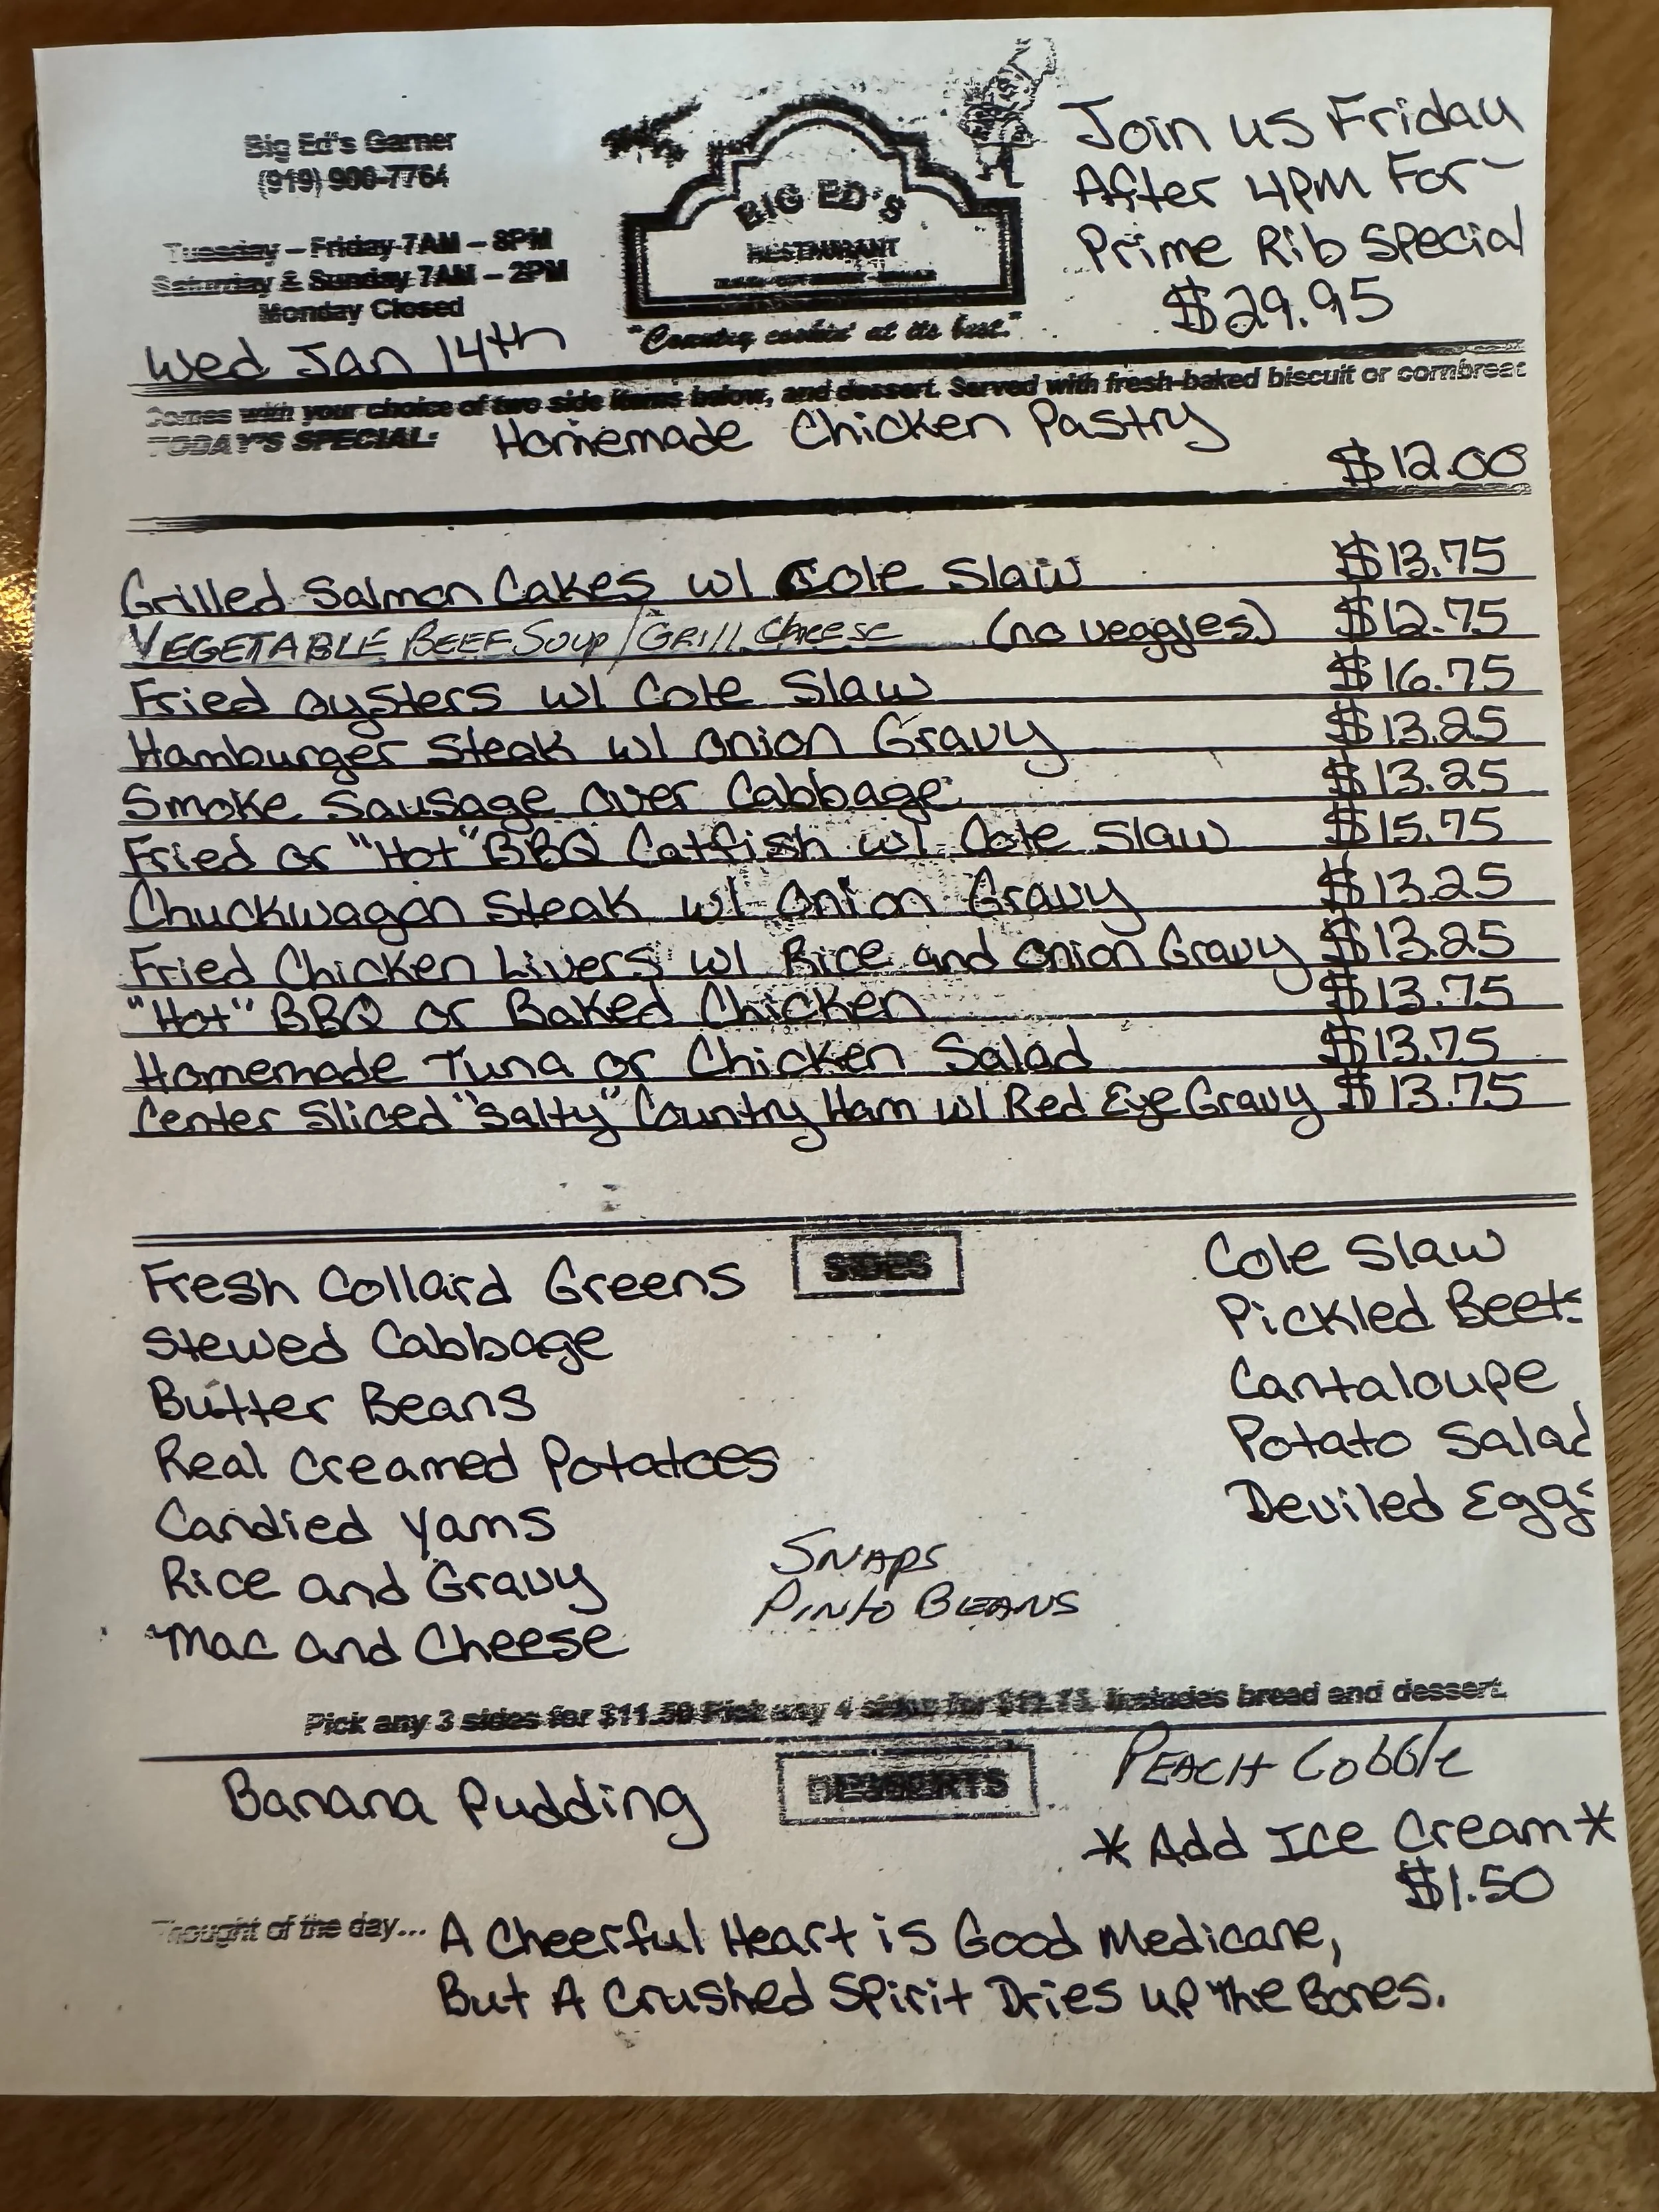 Big Ed's Garner
(919) 900-7764
Tuesday – Friday 7AM – 8PM
Saturday & Sunday 7AM – 2PM
Monday Closed
Wed Jan 14th
BIG ED'S
RESTAURANT
"Country cookin' at its best."
Join us Friday
After 4PM For
Prime Rib Special
$29.95
Comes with your choice of two side items below, and dessert. Served with fresh-baked biscuit or cornbread
TODAY'S SPECIAL: Homemade Chicken Pastry
$12.00
Grilled Salmon Cakes w/ Cole Slaw $13.75
VEGETABLE BEEF Soup/GRILL Cheese (no veggies) $12.75
Fried Oysters w/ Cole Slaw $16.75
Hamburger Steak w/ Onion Gravy $13.25
Smoke Sausage Over Cabbage $13.25
Fried or "Hot" BBQ Catfish w/ Cole Slaw $15.75
Chuckwagon Steak w/ Onion Gravy $13.25
Fried Chicken Livers w/ Rice and Onion Gravy $13.25
"Hot" BBQ or Baked Chicken $13.75
Homemade Tuna or Chicken Salad $13.75
Center Sliced "Salty" Country Ham w/ Red Eye Gravy $13.75
SIDES
Fresh Collard Greens
Stewed Cabbage
Butter Beans
Real Creamed Potatoes
Candied Yams
Rice and Gravy
Mac and Cheese
SNAPS
PINTO BEANS
Cole Slaw
Pickled Beets
Cantaloupe
Potato Salad
Deviled Eggs
Pick any 3 sides for $11.50 Pick any 4 sides for Includes bread and dessert.
DESSERTS
Banana Pudding
PEACH Cobble
* Add Ice Cream *
$1.50
Thought of the day... A Cheerful Heart is Good Medicane,
But A Crushed Spirit Dries up The Bones.